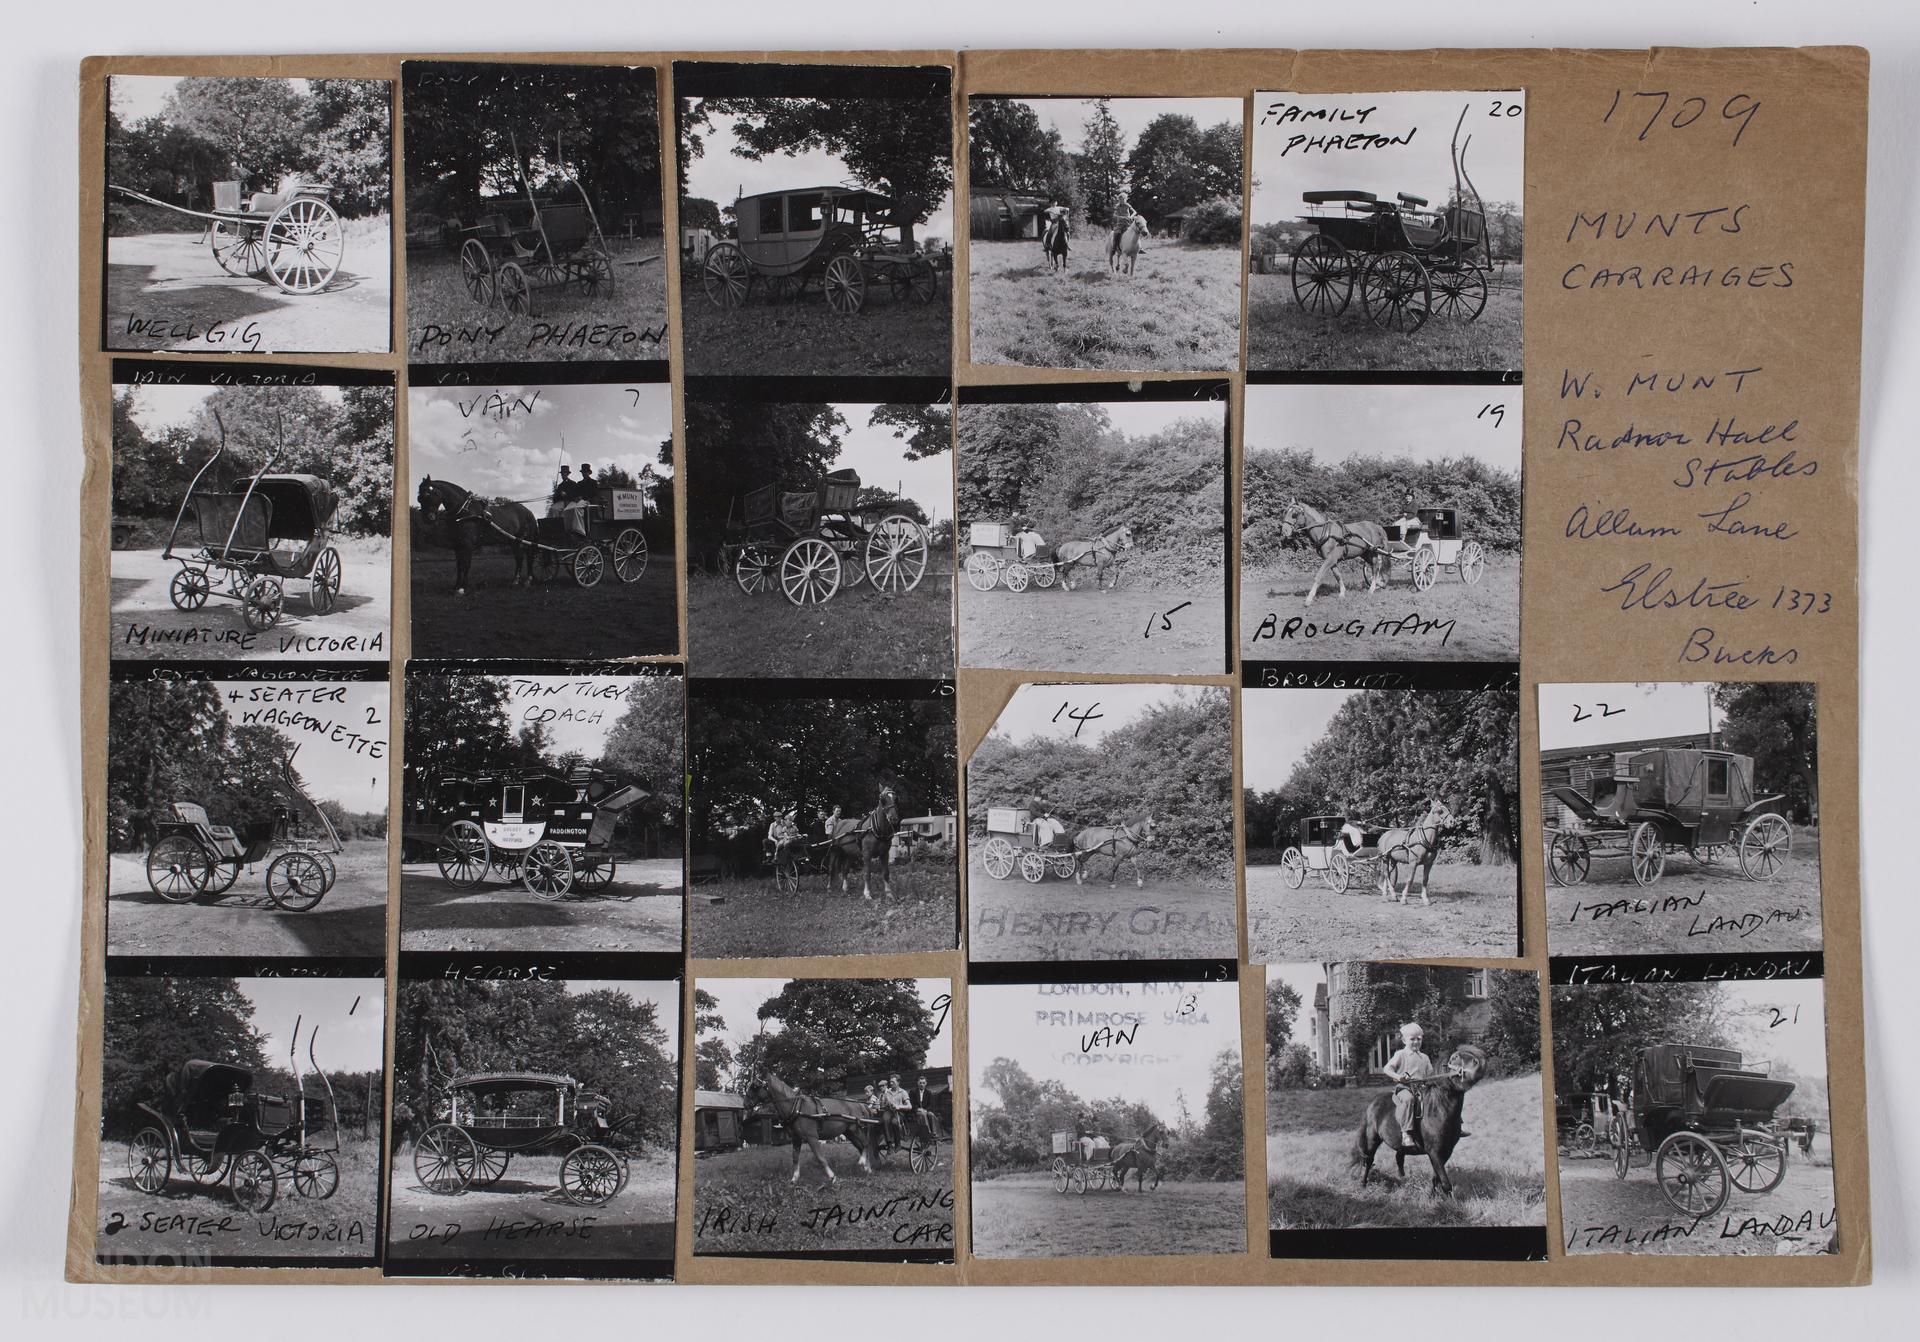 WELL GIG
MINI VICTORIA
MINIATURE VICTORIA
4 SEATER
WAGGONETTE
2
1
2 SEATER VICTORIA
PONY PHAETON
VAN
VAN
7
TAN TIVEY
COACH
PADDINGTON
W. MUNT
HEARSE
OLD HEARSE
9
IRISH JAUNTING
CAR
15
14
HENRY GRANT
LONDON, N.W.3
PRIMROSE 9484
COPYRIGHT
13
13
VAN
FAMILY
PHAETON
20
19
BROUGHAM
BROUGHAM
22
ITALIAN
LANDAU
ITALIAN LANDAU
21
ITALIAN LANDAU
1709
MUNTS
CARRAIGES
W. MUNT
Radnor Hall
Stables
Allum Lane
Elstree 1373
Bucks
LONDON
MUSEUM